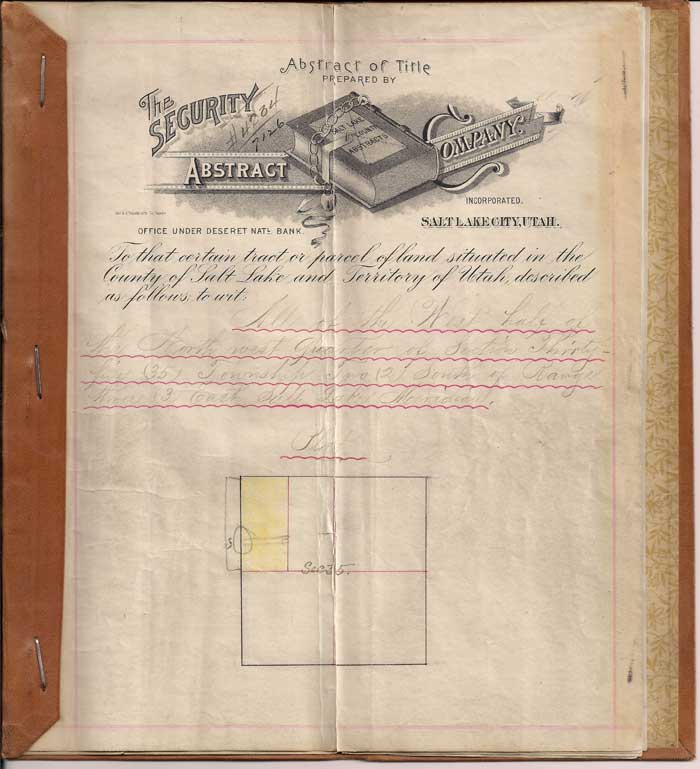 Abstract of Title
PREPARED BY
The
SECURITY
#4784
7126
SALT LAKE
COUNTY
ABSTRACTS
COMPANY.
ABSTRACT
INCORPORATED.
SALT LAKE CITY, UTAH.
OFFICE UNDER DESERET NATL. BANK.
To that certain tract or parcel of land situated in the
County of Salt Lake and Territory of Utah, described
as follows, to wit:
All of the West half of
the North west Quarter of Section Thirty-
five (35) Township Two (2) South of Range
Three (3) East Salt Lake Meridian.
Sec 35.